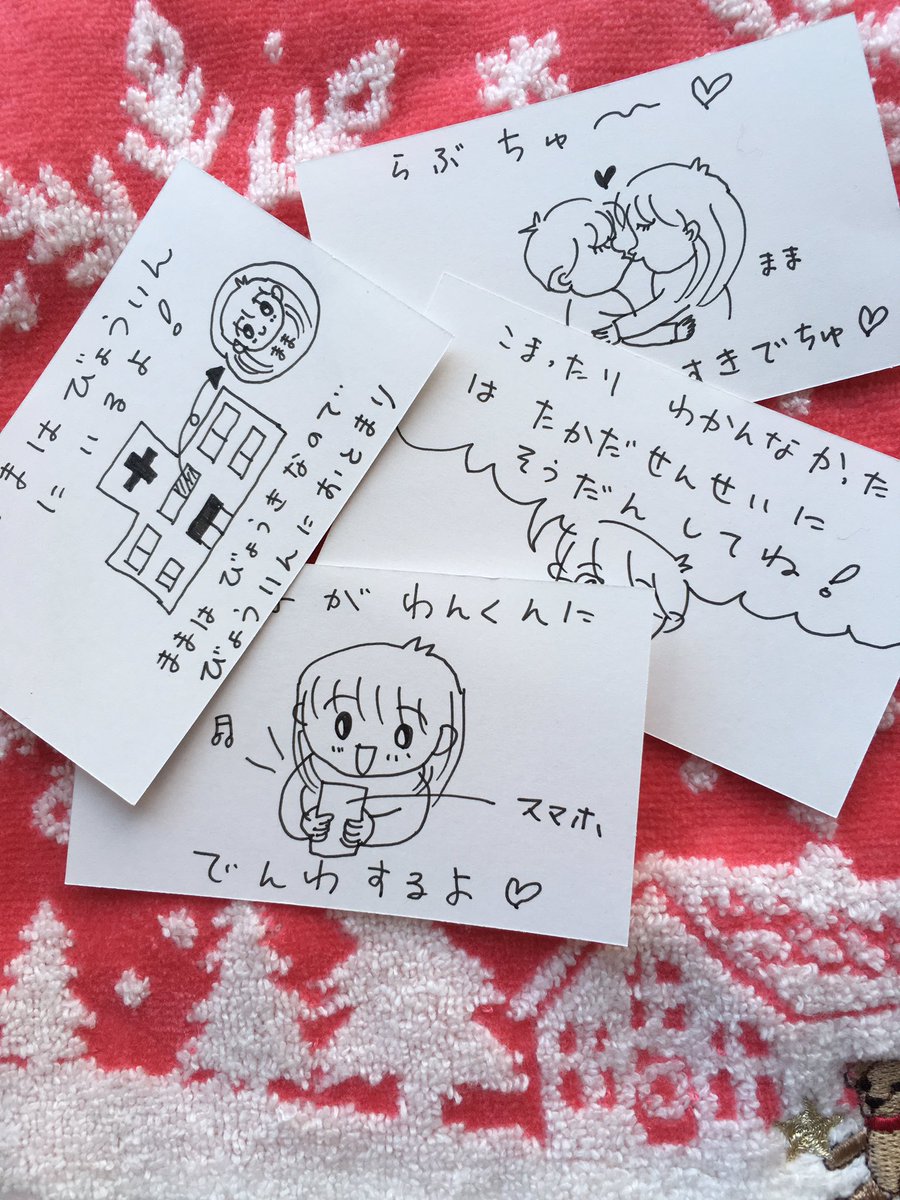 らぶ ちゅ〜 ♡
まま
すきでちゅ♡
こまったり わかんなかった
は たかだせんせいに
そうだん してね!
まは びょういん
に いるよ!
まま
ままは びょうきなので…
びょういんに おとまり
が わんくんに
スマホ
でんわするよ♡